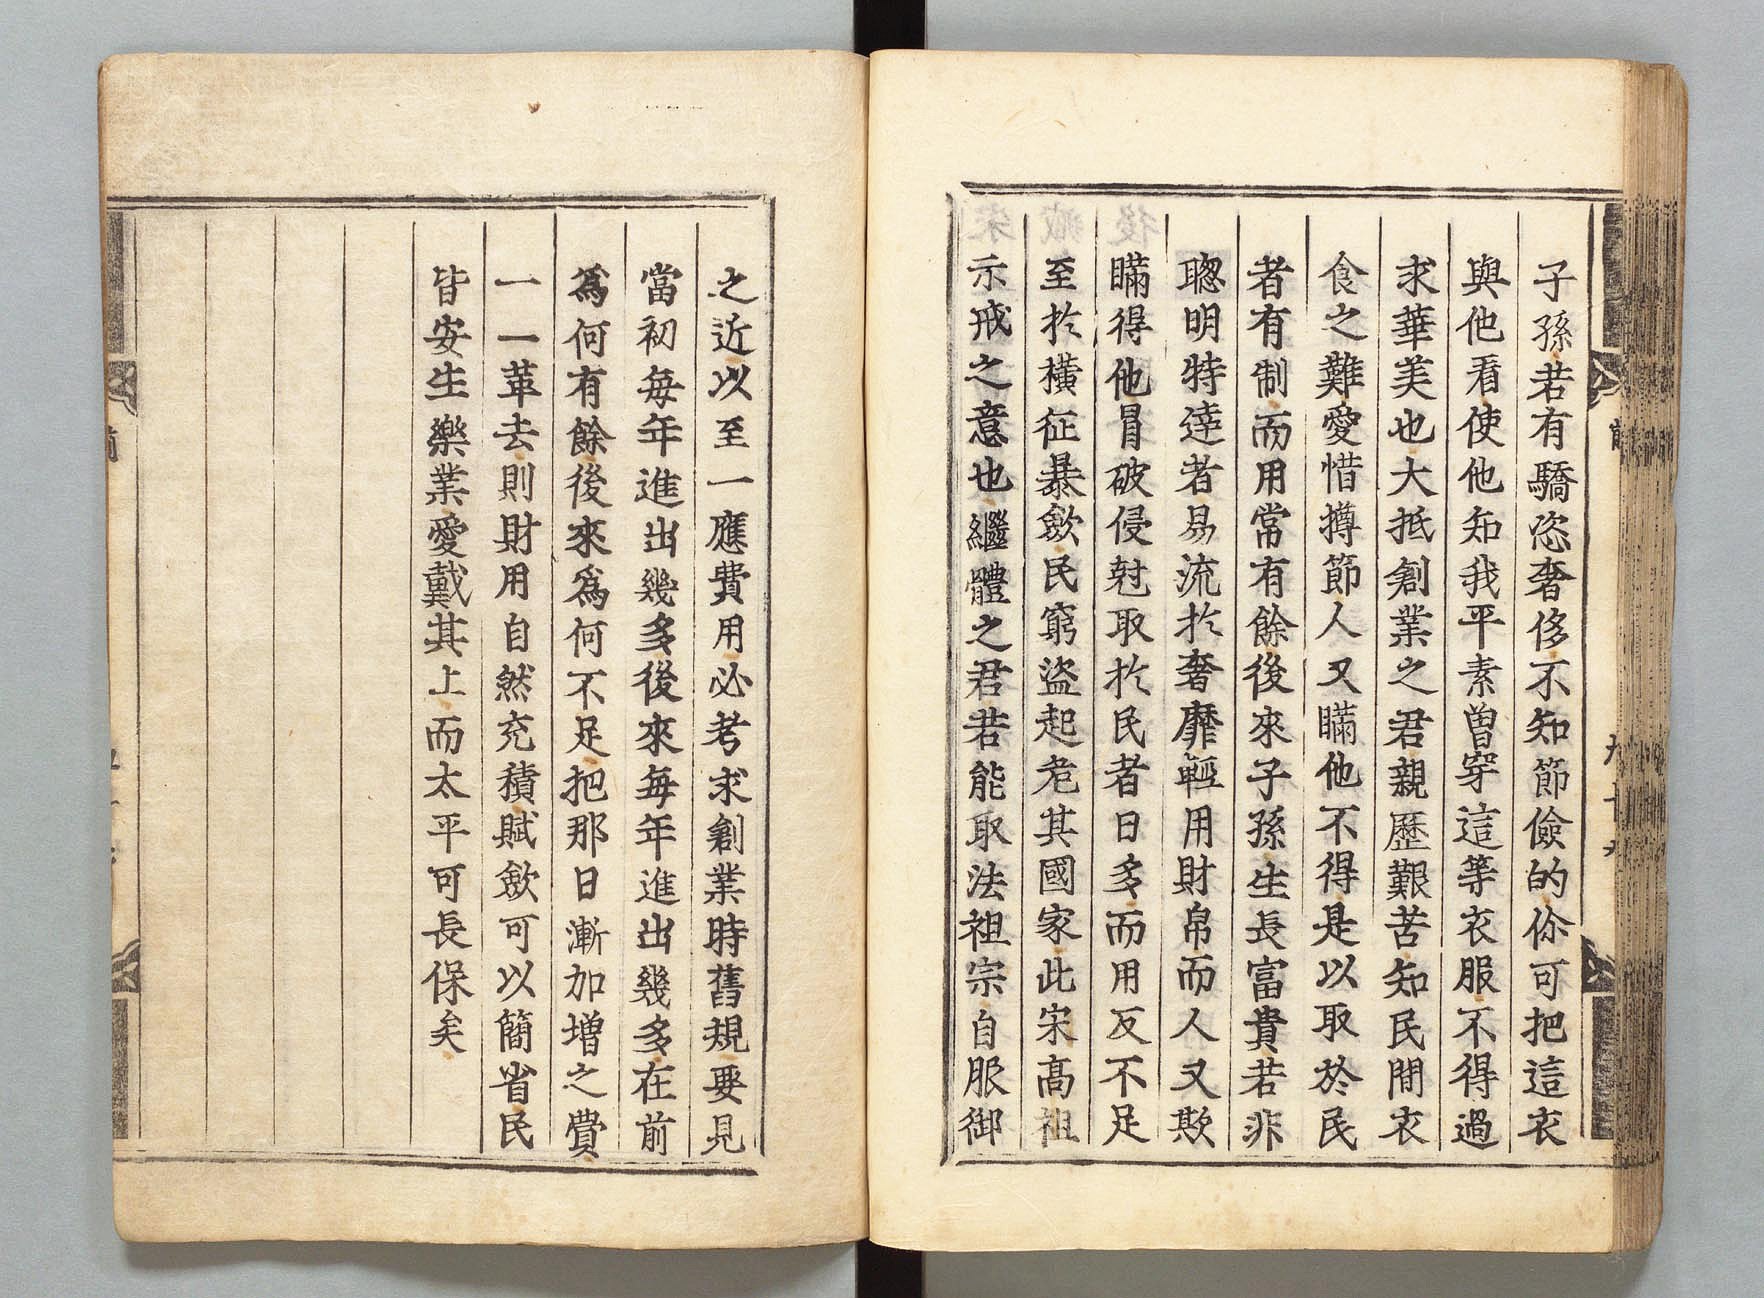 子孫若有驕恣奢侈不知節儉的你可把這衣
與他看使他知我平素曾穿這等衣服不得過
求華美也大抵創業之君親歷艱苦知民間衣
食之難愛惜撙節人又瞞他不得是以取於民
者有制而用常有餘後來子孫生長富貴若非
聰明特達者易流於奢靡輕用財帛而人又欺
瞞得他冒破侵尅取於民者日多而用反不足
至於橫征暴斂民窮盜起危其國家此宋高祖
示戒之意也繼體之君若能取法祖宗自服御
之近以至一應費用必考求創業時舊規要見
當初每年進出幾多後來每年進出幾多在前
爲何有餘後來爲何不足把那日漸加增之費
一一革去則財用自然充積賦斂可以簡省民
皆安生樂業愛戴其上而太平可長保矣